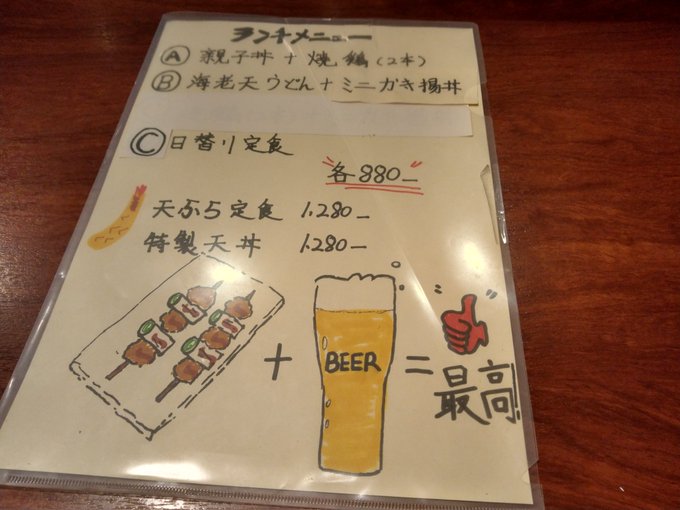 ランチメニュー
Ⓐ 親子丼 + 焼鶏(2本)
Ⓑ 海老天うどん+ミニかき揚丼
Ⓒ 日替り定食
各880-
天ぷら定食 1.280-
特製天丼 1.280-
+ BEER = 最高!